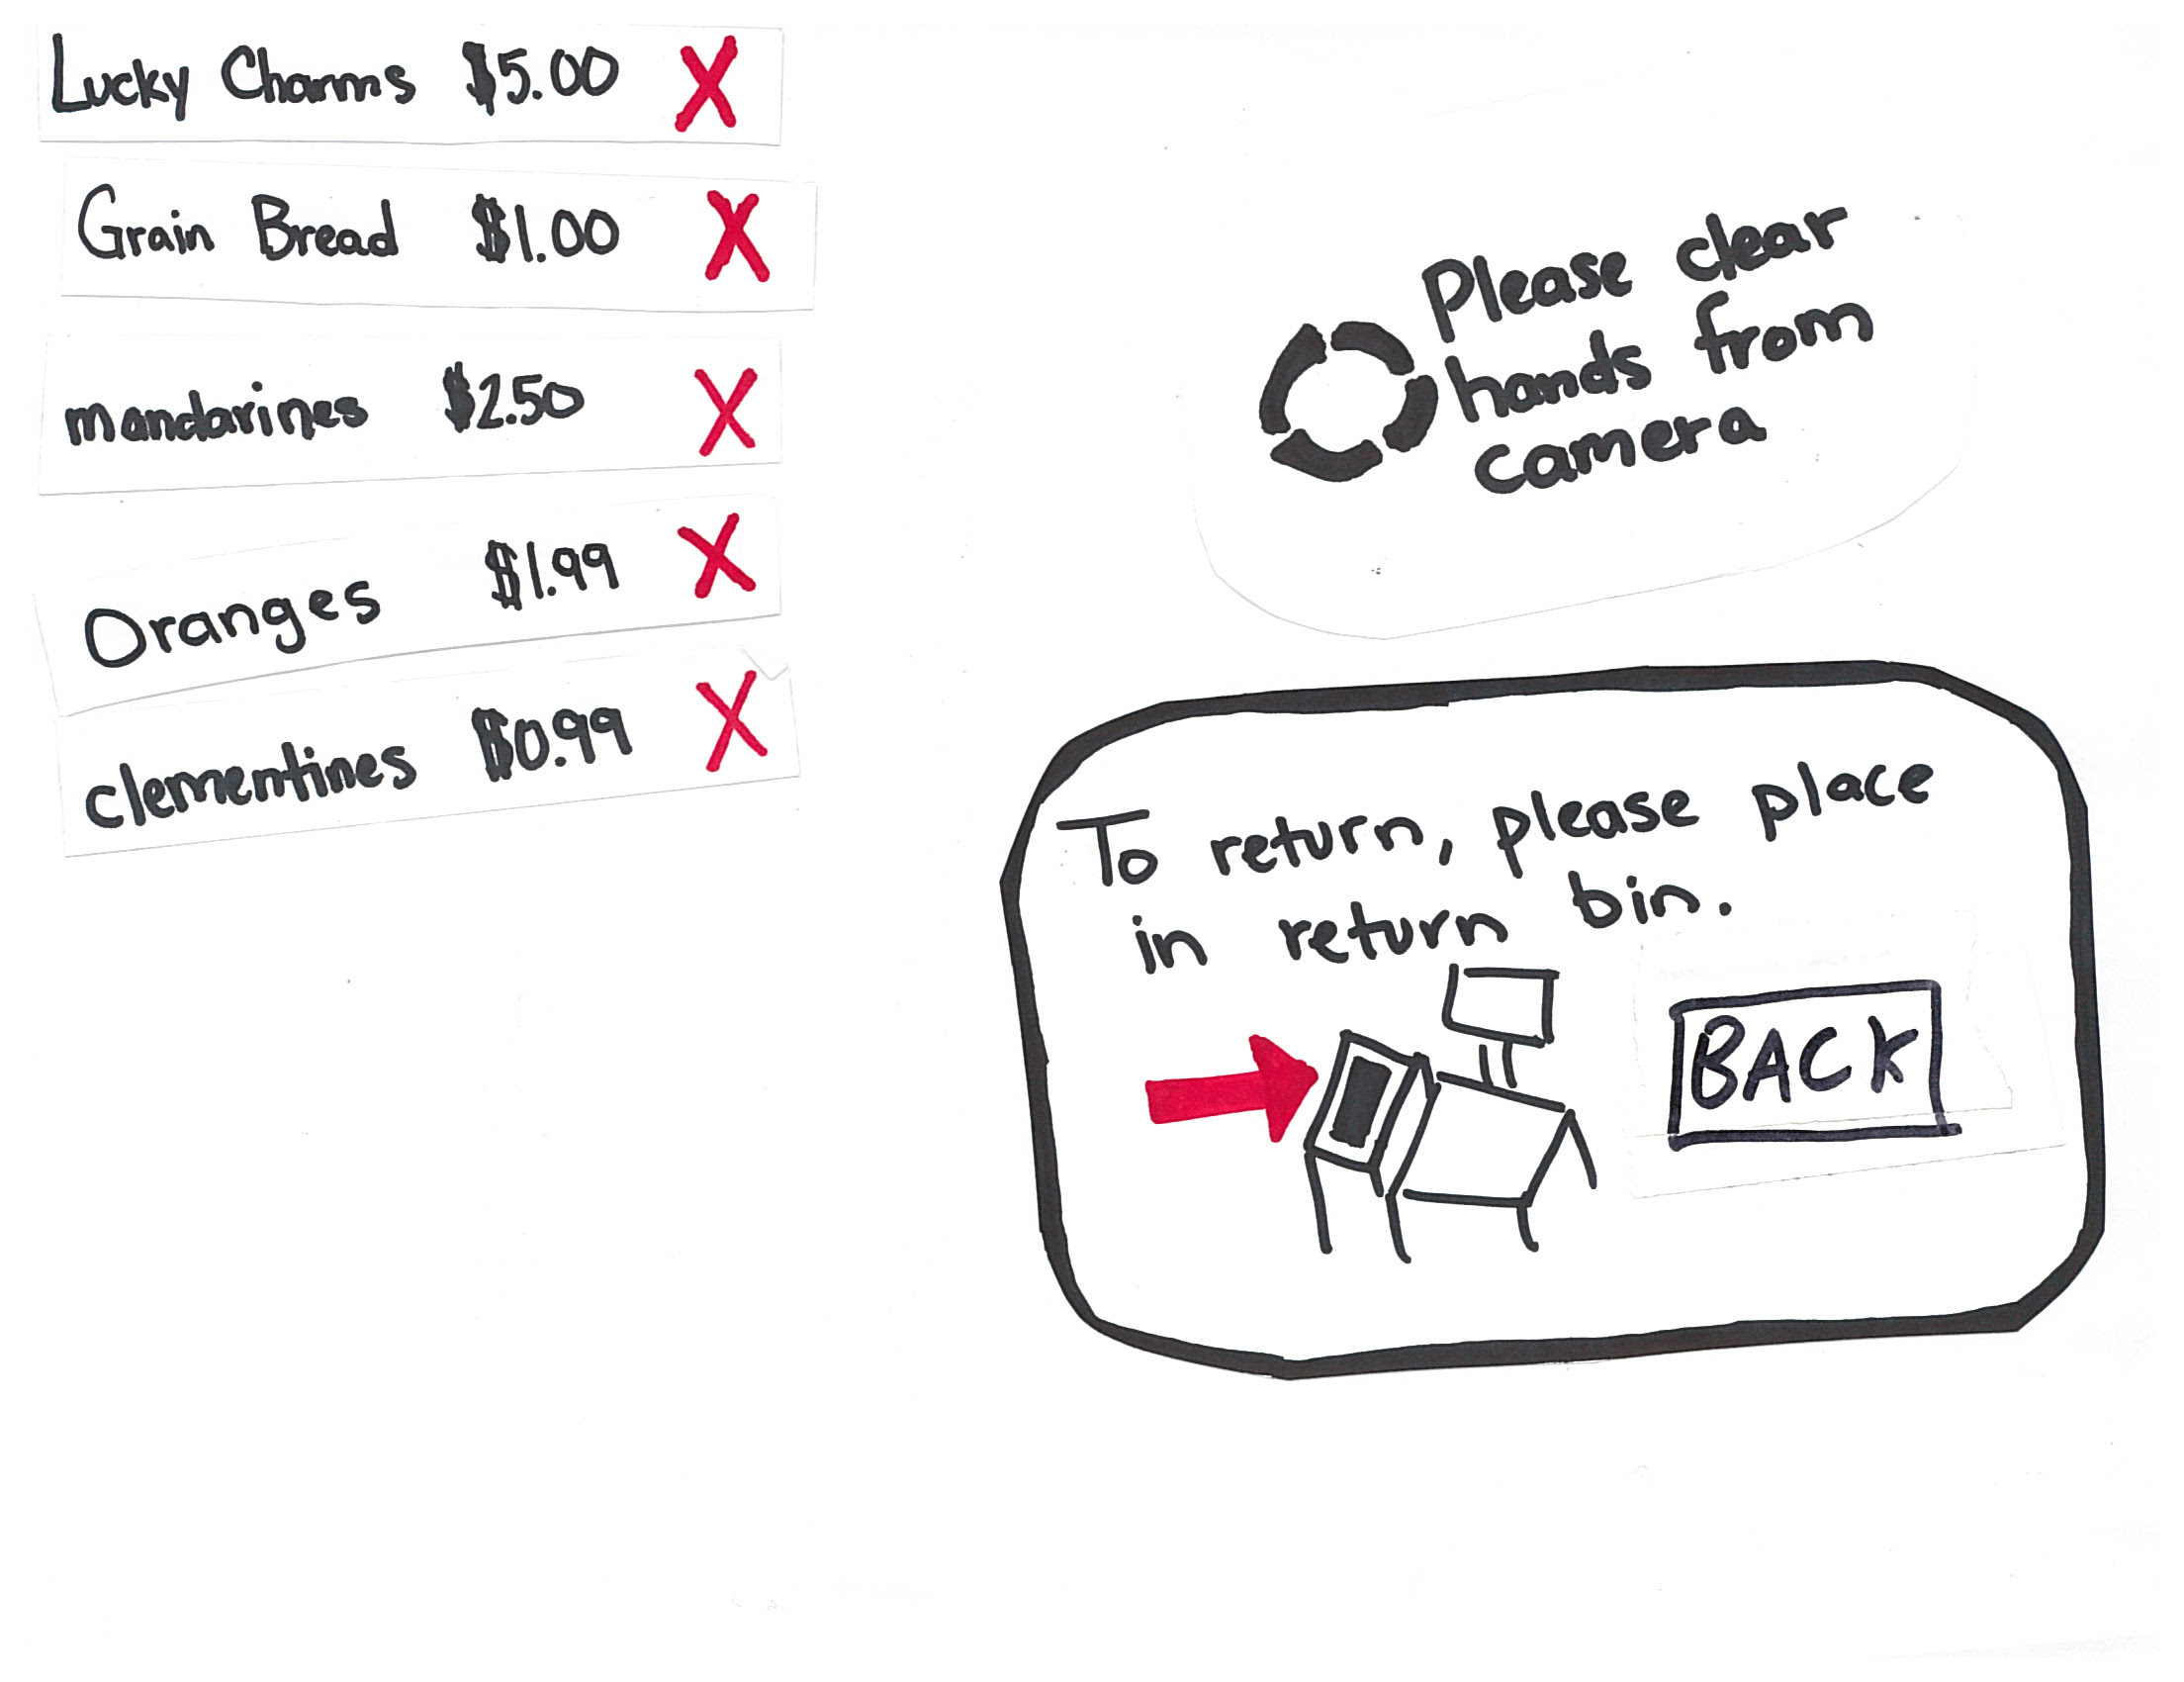 Lucky Charms $5.00 X
Grain Bread $1.00 X
mandarines $2.50 X
Oranges $1.99 X
clementines $0.99 X
Please clear
hands from
camera
To return, please place
in return bin.
BACK